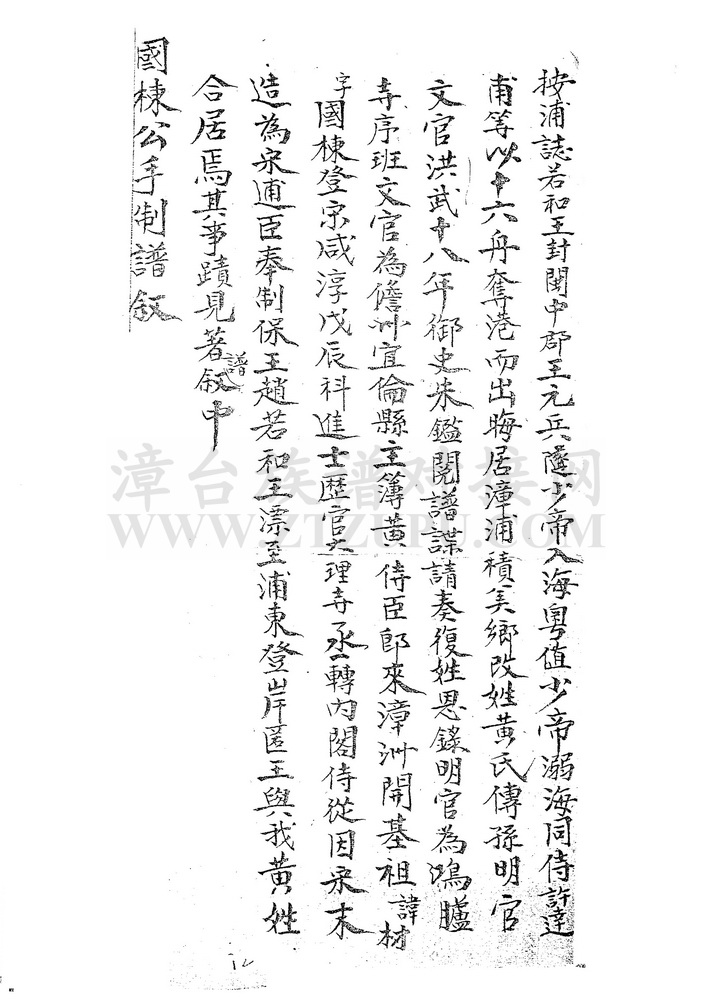 按浦誌若和王封閩中郡王元兵隨少帝入海粵值少帝溺海同侍許達
甫等以十六舟奪港而出晦居漳浦積美鄉改姓黃氏傳孫明官
文官洪武十八年御史朱鑑閱譜諜請奏復姓恩錄明官為鴻臚
寺序班文官為儋州宜倫縣主簿黃侍臣即來漳州開基祖諱材
字國棟登宋咸淳戊辰科進士歷官大理寺丞轉內閣侍從因宋末
造為宋逋臣奉制保王趙若和王漂至浦東登岸匿王與我黃姓
合居焉其事蹟見著譜叙中
國棟公手制譜叙
漳台族谱对接网
WWW.ZTZUPU.COM
12